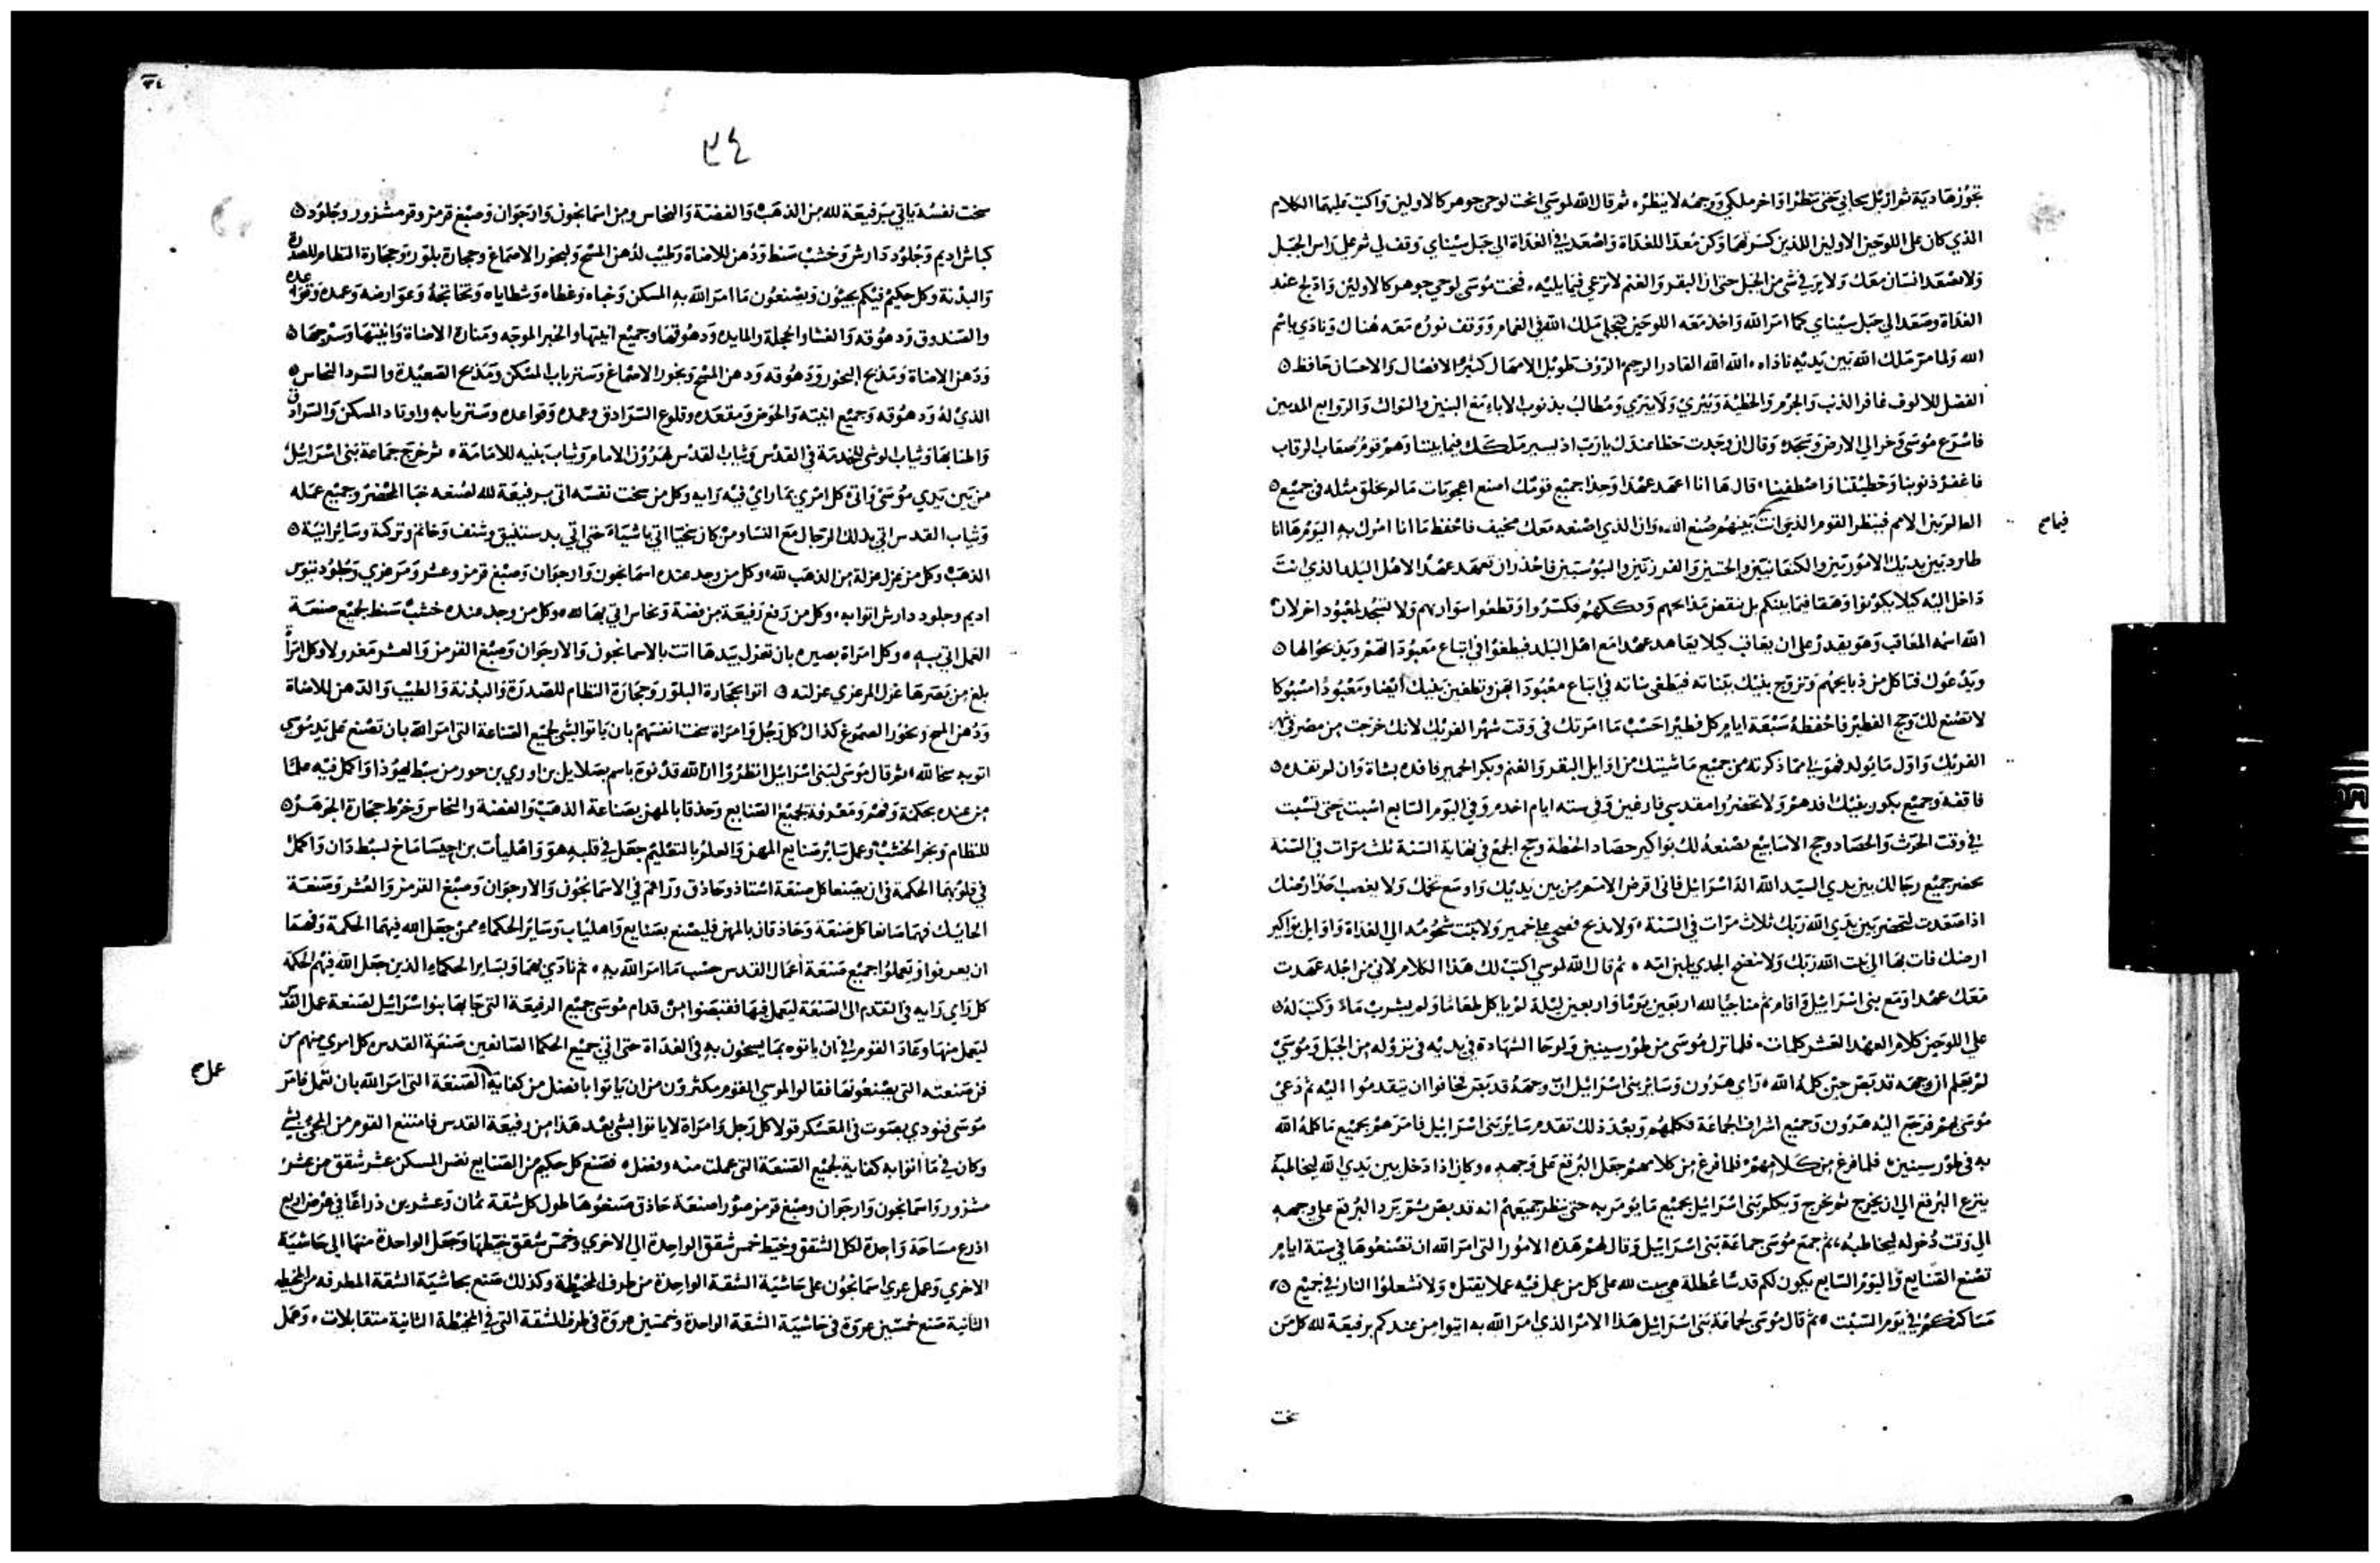 تجوز هادية ثم ازيل سحابي حتى تنظر اواخر ملكي ووجهه لا ينظر، ثم قال الله لموسى انحت لوحي جوهر كالاولين واكتب عليهما الكلام
الذي كان على اللوحين الاولين اللذين كسرتهما وكن معدا للغداة واصعد في الغداة الى جبل سيناي وقف لي ثم على راس الجبل
ولا يصعد انسان معك ولا يرى في شي من الجبل حتى ان البقر والغنم لا ترعى فيما يليه، فنحت موسى لوحي جوهر كالاولين وادلج عند
الغداة وصعد الي جبل سيناي كما امر الله واخذ معه اللوحين فتجلى ملك الله في الغمام ووقف نوره معه هناك ونادي باسم
الله ولما مر ملك الله بين يديه ناداه، الله الله القادر الرحيم الروف طويل الامهال كثير الافضال والاحسان حافظ
الفضل للالوف غافر الذنب والجرم والخطية ويبري ولا يبري ومطالب بذنوب الاباء مع البنين والثوالث والروابع
فاسرع موسى وخر الي الارض وسجد، وقال ان وجدت حظا عندك يا رب اذ يسير ملكك فيما بيننا وهم قوم صعاب الرقاب
فاغفر ذنوبنا وخطيتنا واصطفينا، قال ها انا اعهد عهدا وحذا جميع قومك اصنع اعجوبات ما لم يخلق مثله في جميع
العالم بين الامم فينظر القوم الذي انت بينهم صنع الله، وان الذي اصنعه معك مخيف فاحفظ ما انا امرك به اليوم ها انا
فيما
طارد بين يديك الاموريين والكنعانيين والحتيين والفرزيين واليبوسيين فاحذر ان تعهد عهدا لاهل البلد الذي انت
داخل اليه كيلا يكونوا وهقا فيما بينكم بل تنقض مذابحهم ونسككهم فكسروا وقطعوا سواريهم ولا تسجد لمعبود اخر لان
الله اسمه المعاقب وهو يقدر على ان يعاقب كيلا يعاهد عهدا مع اهل البلد فيطغوا في اتباع معبوداتهم ويذبحوا لها
ويدعوك فتاكل من ذبايحهم وتزوج بنيك ببناته فيطغى بناته في اتباع معبوداتهن وتطغين بنيك ايضا ومعبودا مسبوكا
لا تصنع لك وحج الفطير فاحفظه سبعة ايام كل فطيرا حسب ما امرتك في وقت شهر الفريك لانك خرجت من مصر في
الفريك واول ما يولد فهو لي مما ذكرته من جميع ماشيتك من اوايل البقر والغنم وبكر الحمير فافده بشاة وان لم تفده
فاقفه وجميع بكور بنيك افدهم ولا تحضروا مقدسي فارغين وفي سته ايام اخدم وفي اليوم السابع اسبت حتى تسبت
في وقت الحرث والحصاد وحج الاسابيع تصنعه لك بواكير حصاد الحنطة وحج الجمع في نهاية السنة ثلث مرات في السنة
يحضر جميع رجالك بين يدي السيد الله اله اسرائيل فاني اقرض الامم من بين يديك واوسع تخمك ولا يغصب احد ارضك
اذا صعدت لتحضر بين يدي الله ربك ثلاث مرات في السنة، ولا تذبح فصحي على خمير ولا تبت شحومه الي الغداة واوايل بواكير
ارضك فات بها الي بيت الله ربك ولا تنضج الجدي بلبن امه، ثم قال الله لموسى اكتب لك هذا الكلام لاني من اجله عهدت
معك عهدا ومع بنى اسرائيل واقام ثم مناجيا لله اربعين يوما واربعين ليلة لم ياكل طعاما ولم يشرب ماء وكتب له
على اللوحين كلام العهد العشر كلمات، فلما نزل موسى من طور سينين ولوحا الشهادة في يديه في نزوله من الجبل وموسى
لم يعلم ان وجهه قد بهر حين كلمه الله، وراي هرون وساير بني اسرائيل ان وجهه قد بهر فخافوا ان يتقدموا اليه ثم دعى
موسى بهم فرجع اليه هرون وجميع اشراف الجماعة فكلمهم وبعد ذلك تقدم ساير بني اسرائيل فامرهم بجميع ما كلمه الله
به في طور سينين، فلما فرغ من كلامهم جعل البرقع على وجهه، وكان اذا دخل بين يدي الله ليخاطبه
ينزع البرقع الي ان يخرج ثم يخرج ويكلم بني اسرائيل بجميع ما يومر به حتى ينظر جميعهم انه قد بهر ثم يرد البرقع على وجهه
الي وقت دخوله ليخاطبه، ثم جمع موسى جماعة بنى اسرائيل وقال لهم هذه الامور التي امر الله ان تصنعوها في ستة ايام
تصنع الصنايع واليوم السابع يكون لكم قدسا عطلة هي سبت لله على كل من عمل فيه عملا يقتل، ولا تشعلوا النار في جميع
مساكنكم في يوم السبت، ثم قال موسى لجماعة بني اسرائيل هذا الامر الذي امر الله به ايتوا من عندكم برفيعة لله كل من
سخت
٣٤
٣٤
سخت نفسه ياتي برفيعة لله من الذهب والفضة والنحاس ومن اسمانجون وارجوان وصبغ قرمز وقز مشزور وجلود
كباش اديم وجلود دارش وخشب سنط ودهن للاضاة وطيب لدهن المسح ولبخور الاصماغ وحجارة بلور وحجارة النظام للصدرة
والبدنة وكل حكيم فيكم يجيئون ويصنعون ما امر الله به المسكن وخباه وغطاه وشظاياه وتخاتجه وعوارضه وعمده وقواعده
والصندوق ودهوقه والغشا والحجلة والمايده ودهوقها وجميع انيتها والخبز الموجه ومنارة الاضاة وانيتها وسرجها
ودهن الاضاة ومذبح البخور ودهوقه ودهن المسح وبخور الاصماغ وستر باب المسكن ومذبح الصعيدة والسرد النحاس
الذي له ودهوقه وجميع انيته والحوض ومقعده وقلوع السرادق وعمده وقواعده وستر بابه واوتاد المسكن والسرادق
واطنابها وثياب الوشى للخدمة في القدس وثياب القدس لهرون الامام وثياب بنيه للامامة، ثم خرج جماعة بنى اسرائيل
من بين يدي موسى واتى كل امرى بما راى فيه رايه وكل من سخت نفسه اتى برفيعة لله لصنعه خبا المحضر وجميع عمله
وثياب القدس اتى بذلك الرجال مع النسا ومن كان سخيا اتى باشياء حتى اتي بدستنيق وشنف وخاتم وتركة وساير انية
الذهب وكل من عزل عزلة من الذهب لله، وكل من وجد عنده اسمانجون وارجوان وصبغ قرمز وعشر ومرعزي وجلود تيوس
اديم وجلود دارش اتوا به، وكل من رفع رفيعة من فضة ونحاس اتى بها لله، وكل من وجد عنده خشب سنط لجميع صنعة
العمل اتى به، وكل امراة بصيره بان تغزل بيدها اتت بالاسمانجون والارجوان وصبغ القرمز والعشر مغزولا وكل امراة
بلغ من بصرها غزل المرعزي عزلته، اتوا بحجارة البلور وحجارة النظام للصدرة والبدنة والطيب والدهن للاضاة
ودهن المسح وبخور الصموغ كذاك كل رجل وامراة سخت انفسهم بان ياتوا بشي لجميع الصناعة التى امر الله بان تصنع على يد موسى
اتو به سخا لله، ثم قال موسى لبنى اسرائيل انظروا ان الله قد نوه باسم بصلايل بن اوري بن حور من سبط يهوذا واكمل فيه علما
من عنده بحكمة وفهم ومعرفة بجميع الصنايع وحذقا بالمهن بصناعة الذهب والفضة والنحاس وخرط حجارة الجوهر
للنظام ونجر الخشب وعمل ساير صنايع المهن والعلم بالتعليم جعل في قلبه هو واهليأب بن احيساماخ لسبط دان واكمل
في قلوبهما الحكمة في ان يصنعا كل صنعة استاذ وحاذق وراقم في الاسمانجون والارجوان وصبغ القرمز والعشر وصنعة
الحايك فهما صانعا كل صنعة وحاذقان بالمهن فليصنع بصلايل واهلياب وساير الحكماء ممن جعل الله فيهما الحكمة وفهما
ان يعرفوا ويعملوا جميع صنعة اعمال القدس حسب ما امر الله به، ثم نادى بهما وبساير الحكماء الذين جعل الله فيهم الحكمة
كل راي رايه في التقدم الى الصنعة ليعمل فيها فقبضوا من قدام موسى جميع الرفيعة التى جا بها بنوا اسرائيل لصنعة عمل القدس
ليعمل منها وعاد القوم الى ان ياتوه بما يسخون به في الغداة حتى اتى جميع الحكما الصانعين صنعة القدس كل امرى منهم من
عمل صح
فن صنعته التى يصنعونها فقالوا لموسى القوم مكثرون من ان ياتوا بافضل من كفاية الصنعة التى امر الله بان تعمل فامر
موسى فنودي بصوت في المعسكر قولا كل رجل وامراة لا ياتوا بشي بعد هذا من رفيعة القدس فامتنع القوم من المجى بشي
وكان في ما اتوا به كفاية لجميع الصنعة التى عملت منه وفضل، فصنع كل حكيم من الصنايع نفس المسكن عشر شقق من عشر
مشزور واسمانجون وارجوان وصبغ قرمز صورا صنعة حاذق صنعوها طول كل شقة ثمان وعشرين ذراعا في عرض اربع
اذرع مساحة واحدة لكل الشقق وخيط خمس شقق الواحدة الي الاخرى وخمس شقق خيطها وجعل الواحدة منها الى حاشية
الاخري وعمل عري اسمانجون على حاشية الشقة الواحدة من طرف المخيطة وكذلك صنع بحاشية الشقة المطرفه من المخيطه
الثانية صنع خمسين عروة في حاشية الشقة الواحدة وخمسين عروة في طرف الشقة التى في المخيطة الثانية متقابلات، وعمل